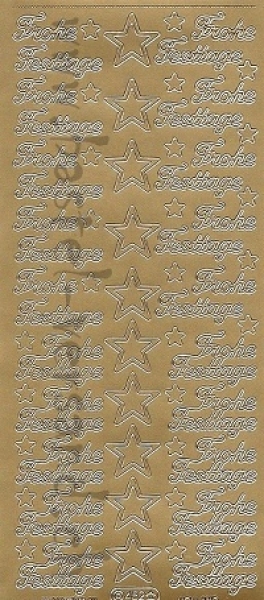 Frohe Frohe
Festtage Festtage
Frohe Frohe
Festtage Festtage
Frohe Frohe
Festtage Festtage
Frohe Frohe
Festtage Festtage
Frohe Frohe
Festtage Festtage
Frohe Frohe
Festtage Festtage
Frohe Frohe
Festtage Festtage
Frohe Frohe
Festtage Festtage
Frohe Frohe
Festtage Festtage
Frohe Frohe
Festtage Festtage